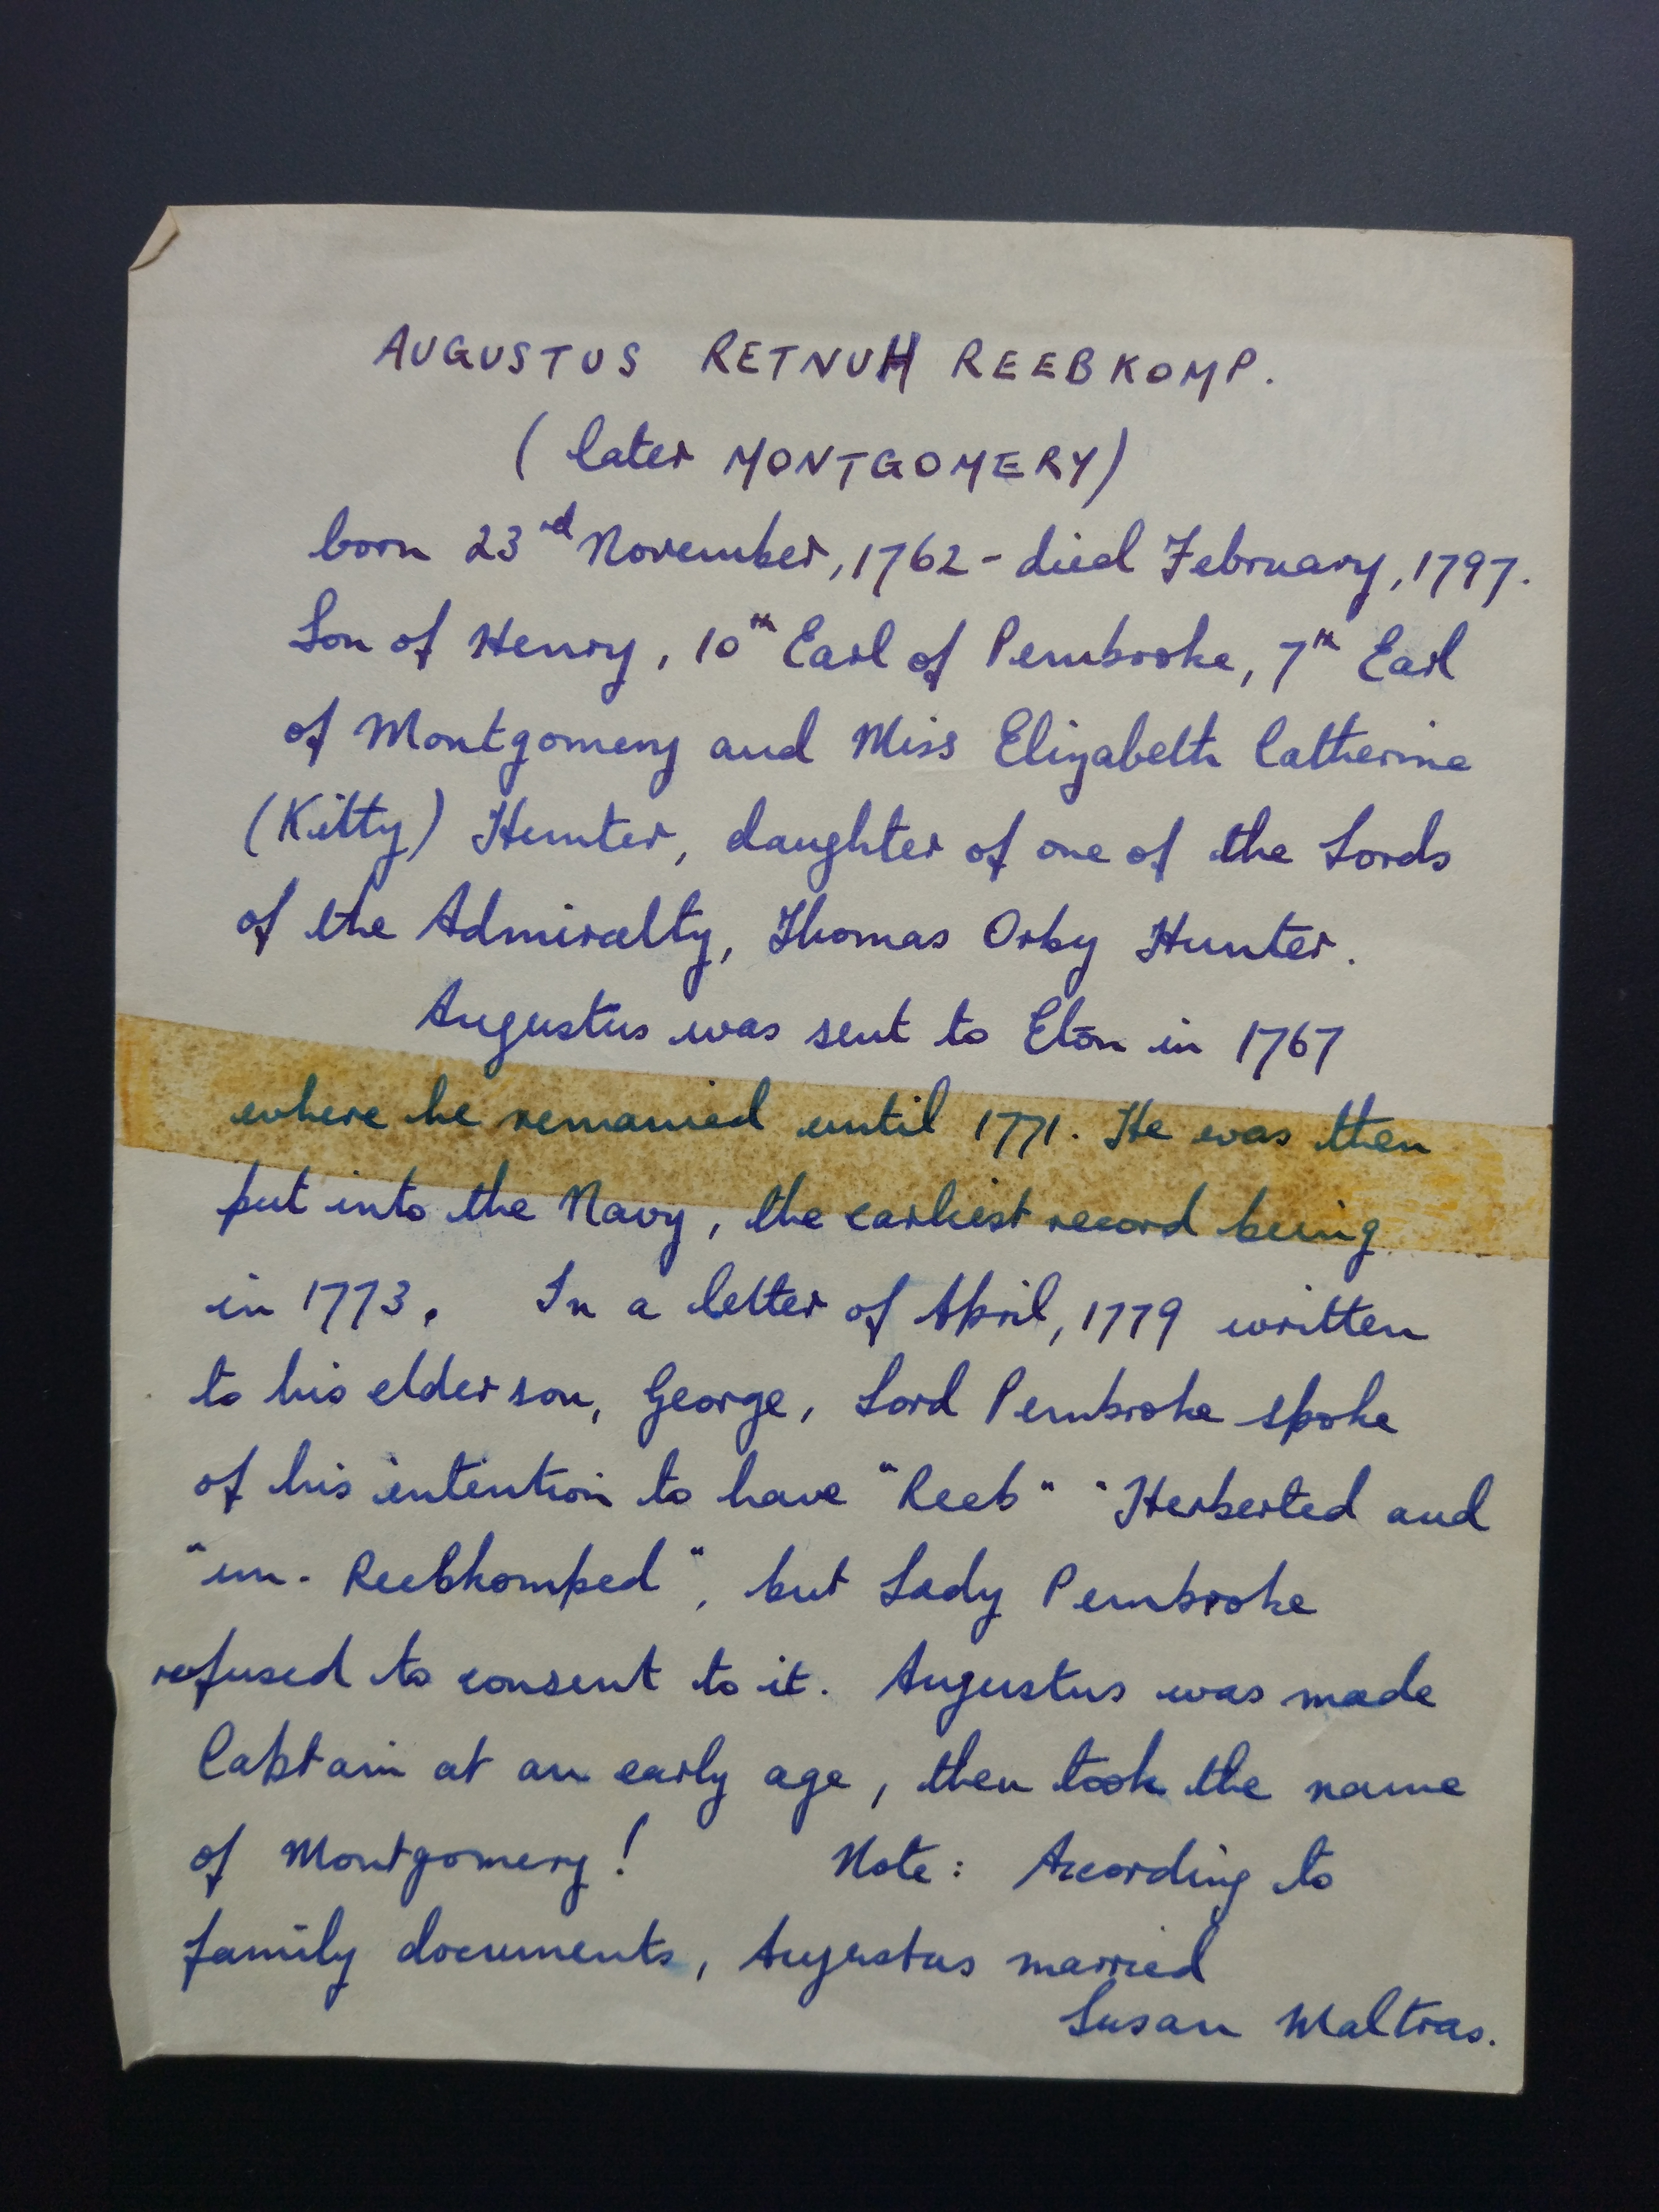 AUGUSTUS RETNUH REEBKOMP.
(later MONTGOMERY)
born 23rd November, 1762 - died February, 1797.
Son of Henry, 10th Earl of Pembroke, 7th Earl
of Montgomery and Miss Elizabeth Catherine
(Kitty) Hunter, daughter of one of the Lords
of the Admiralty, Thomas Orby Hunter.
Augustus was sent to Eton in 1767
where he remained until 1771. He was then
put into the Navy, the earliest record being
in 1773. In a letter of April, 1779 written
to his elder son, George, Lord Pembroke spoke
of his intention to have "Reeb" "Herberted and
"un-Reebkomped", but Lady Pembroke
refused to consent to it. Augustus was made
Captain at an early age, then took the name
of Montgomery! Note: According to
family documents, Augustus married
Susan Maltras.